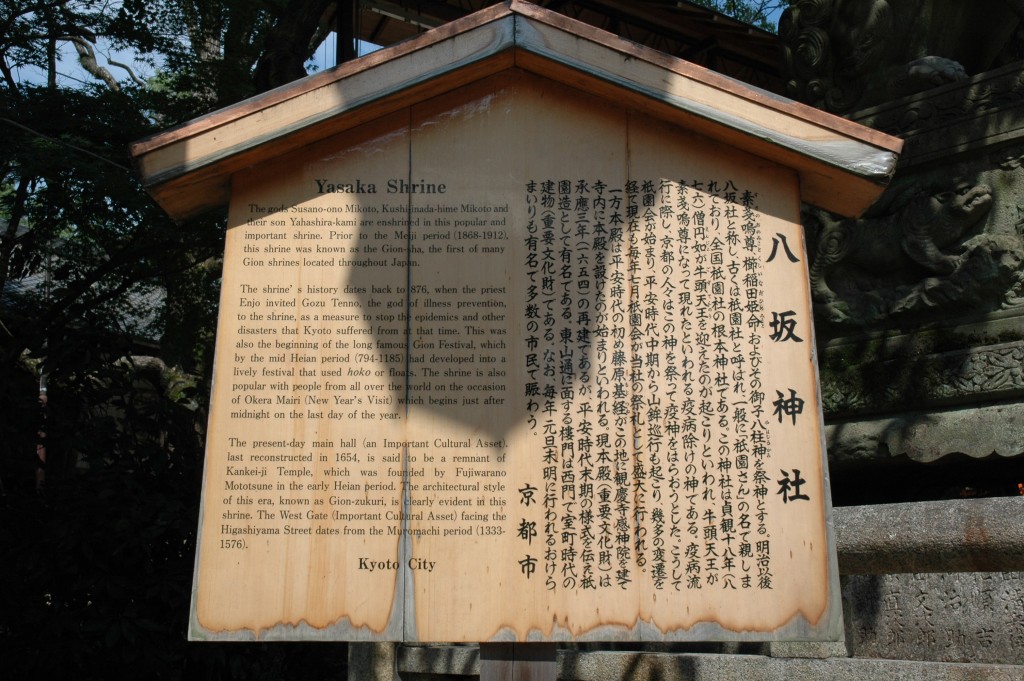 Yasaka Shrine
The gods Susano-ono Mikoto, Kushi-inada-hime Mikoto and
their son Yahashira-kami are enshrined in this popular and
important shrine. Prior to the Meiji period (1868-1912),
this shrine was known as the Gion-sha, the first of many
Gion shrines located throughout Japan.
The shrine's history dates back to 876, when the priest
Enjo invited Gozu Tenno, the god of illness prevention,
to the shrine, as a measure to stop the epidemics and other
disasters that Kyoto suffered from at that time. This was
also the beginning of the long famous Gion Festival, which
by the mid Heian period (794-1185) had developed into a
lively festival that used hoko or floats. The shrine is also
popular with people from all over the world on the occasion
of Okera Mairi (New Year's Visit) which begins just after
midnight on the last day of the year.
The present-day main hall (an Important Cultural Asset),
last reconstructed in 1654, is said to be a remnant of
Kankei-ji Temple, which was founded by Fujiwarano
Mototsune in the early Heian period. The architectural style
of this era, known as Gion-zukuri, is clearly evident in this
shrine. The West Gate (Important Cultural Asset) facing the
Higashiyama Street dates from the Muromachi period (1333-
1576).
Kyoto City
八坂神社
素戔嗚尊、櫛稲田姫命、およびその御子八柱神を祭神とする。明治以後
八坂社と称し、古くは祇園社と呼ばれ、一般に祇園さんの名で親しま
れており、全国祇園社の根本神社である。この神社は貞観十八年(八
七六)僧円如が牛頭天王を迎えたのが起こりといわれ、牛頭天王が
素戔嗚尊になって現れたといわれる疫病除けの神である。疫病流
行に際し、京都の人々はこの神を祭って疫神をはらおうとした。こうして
祇園会が始まり、平安時代中期から山鉾巡行も起こり、幾多の変遷を
経て現在も毎年七月祇園会が当社の祭礼として盛大に行われる。
一方本殿は平安時代の初め藤原基経がこの地に観慶寺感神院を建て
寺内に本殿を設けたのが始まりといわれる。現本殿(重要文化財)は
承應三年(一六五四)の再建であるが、平安時代末期の様式を伝え祇
園造として有名である。東山通に面する樓門は西門で室町時代の
建物(重要文化財)である。なお、毎年一元旦未明に行われるおけら
まいりも有名で多数の市民で賑わう。
京都市